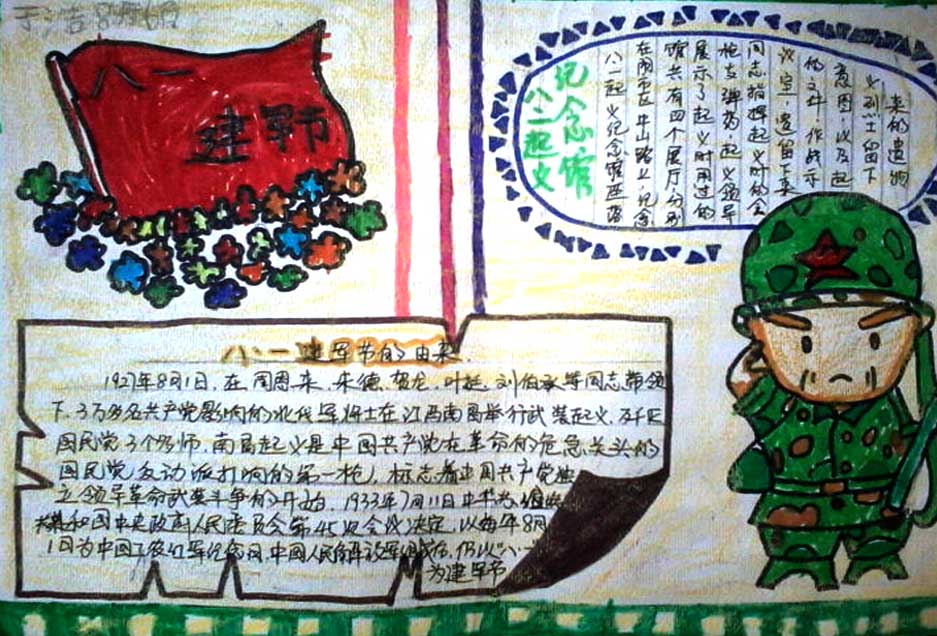 八一
建军节
纪念馆
八一起义
八一起义纪念馆
在南 区中山路上,纪念
馆共有四个展厅,分别
展示了起义时用过的
枪支弹药,起义领导
同志指挥起义时的会
议室,遗留下来
的文件,作战示
意图,以及起
义烈士留下
来的遗物
八一建军节的由来
1927年8月1日,在周恩来、朱德、贺龙、叶挺、刘伯承等同志带领
下,3万多名共产党影响的北伐军将士在江西南昌举行武装起义,
国民党 南昌起义是中国共产党在革命的危急关头的
国民党反动派打响的第一枪,标志着中国共产党独
立领导革命武装斗争的开始。1933年7月11日中华
和国中央政府人民委员会第45次会议决定,以每年8月
1日为中国工农红军纪念日,中国人民解放军 仍以“八一”
为建军节